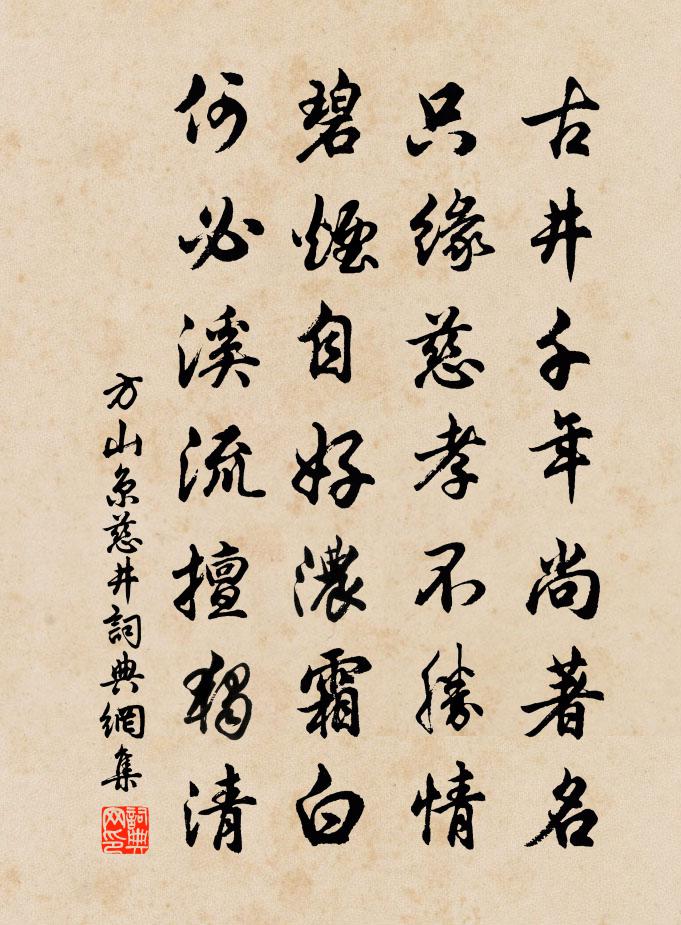 古井千年尚著名
只緣慈孝不勝情
碧煙自好濃霜白
何必溪流擅獨清
方山京慈井詞典網集
詞典网印